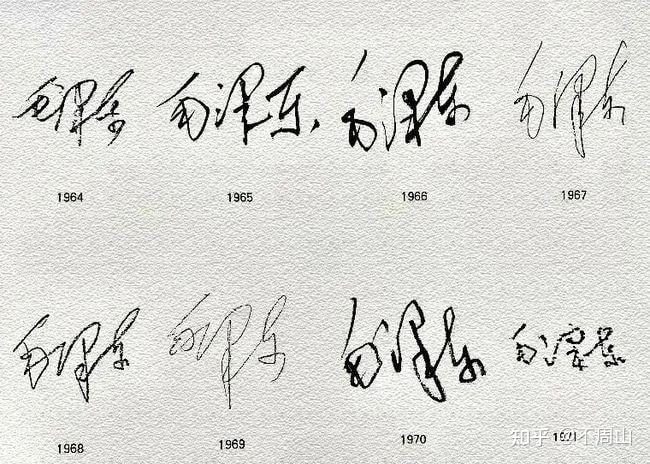 毛泽东 毛泽东 毛泽东 毛泽东
1964 1965 1966 1967
毛泽东 毛泽东 毛泽东 毛泽东
1968 1969 1970 1971
知乎 @不周山